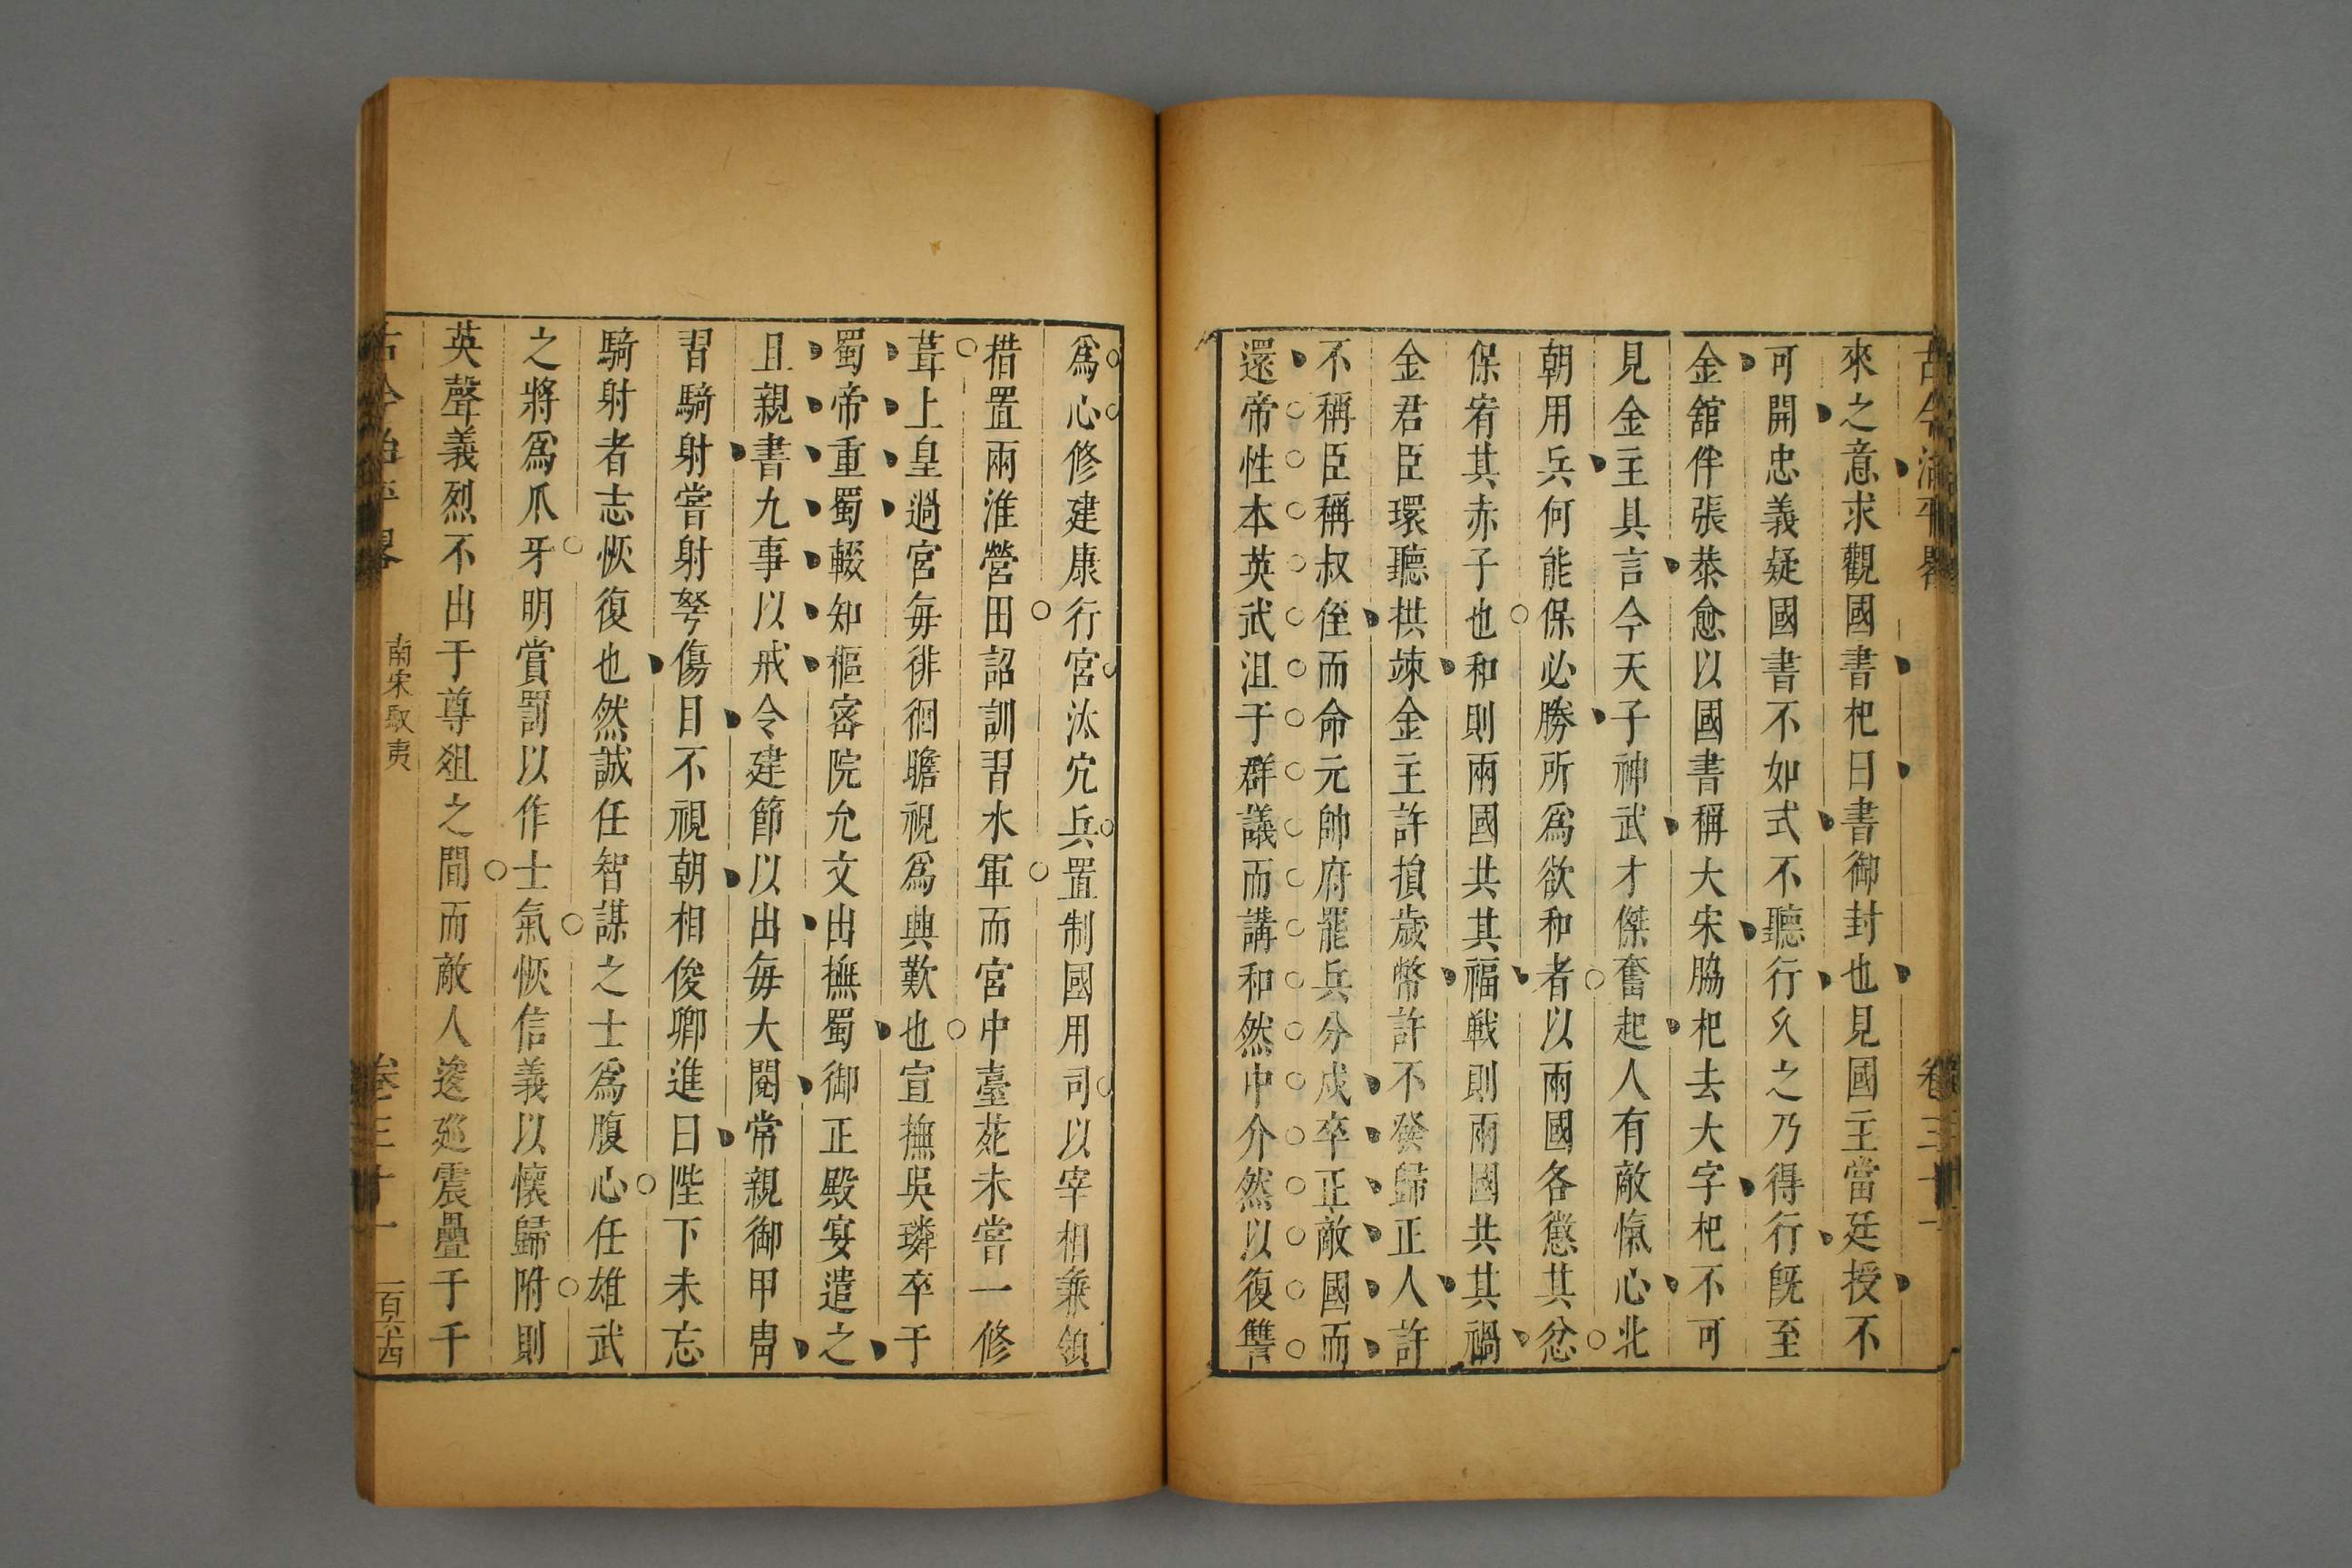 古今治平畧
卷三十一
來之意求觀國書杞曰書御封也見國主當廷授不
可開忠義疑國書不如式不聽行久之乃得行旣至
金館伴張恭愈以國書稱大宋脇杞去大字杞不可
見金主具言今天子神武才傑奮起人有敵愾心北
朝用兵何能保必勝所爲欲和者以兩國各懲其忿
保宥其赤子也和則兩國共其福戰則兩國共其禍
金君臣環聽拱竦金主許損歲幣許不發歸正人許
不稱臣稱叔侄而命元帥府罷兵分戍卒正敵國而
還帝性本英武沮于群議而講和然中介然以復讐
爲心修建康行宮汰冗兵置制國用司以宰相兼領
措置兩淮營田詔訓習水軍而宮中臺苑未嘗一修
葺上皇過宮毎徘徊瞻視爲興歎也宣撫吳璘卒于
蜀帝重蜀輟知樞密院允文出撫蜀御正殿宴遣之
且親書九事以戒令建節以出每大閱常親御甲冑
習騎射嘗射弩傷目不視朝相俊卿進曰陛下未忘
騎射者志恢復也然誠任智謀之士爲腹心任雄武
之將爲爪牙明賞罰以作士氣恢信義以懷歸附則
英聲義烈不出于尊俎之間而敵人逡廵震疊于千
古今治平畧
南宋馭夷
卷三十一
百六四